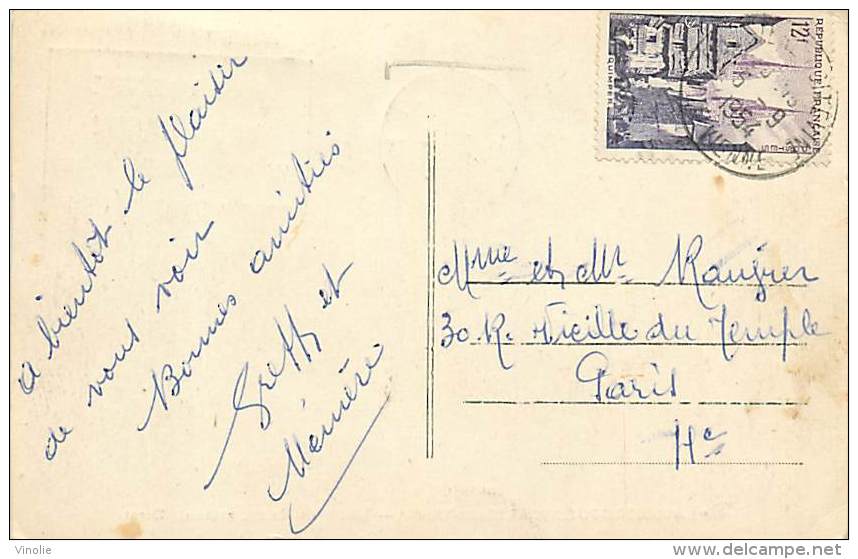 à bientôt le plaisir
de vous voir
Bonnes amitiés
Greff et
Ménière
Mme et Mr Raugier
30 R. Vieille du Temple
Paris
4e
REPUBLIQUE FRANÇAISE
12f
POSTES
QUIMPER
1954
Vinolie
delcampe.net